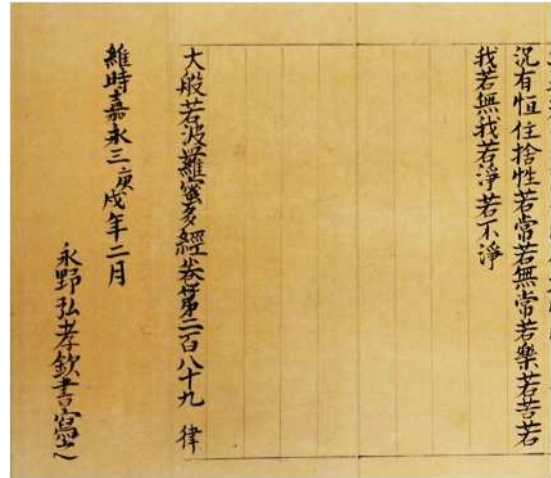 況有恒住捨性若常若無常若樂若苦若
我若無我若淨若不淨
大般若波羅蜜多經卷第二百八十九 律
維時嘉永三庚戌年二月
永野弘孝欽書寫之